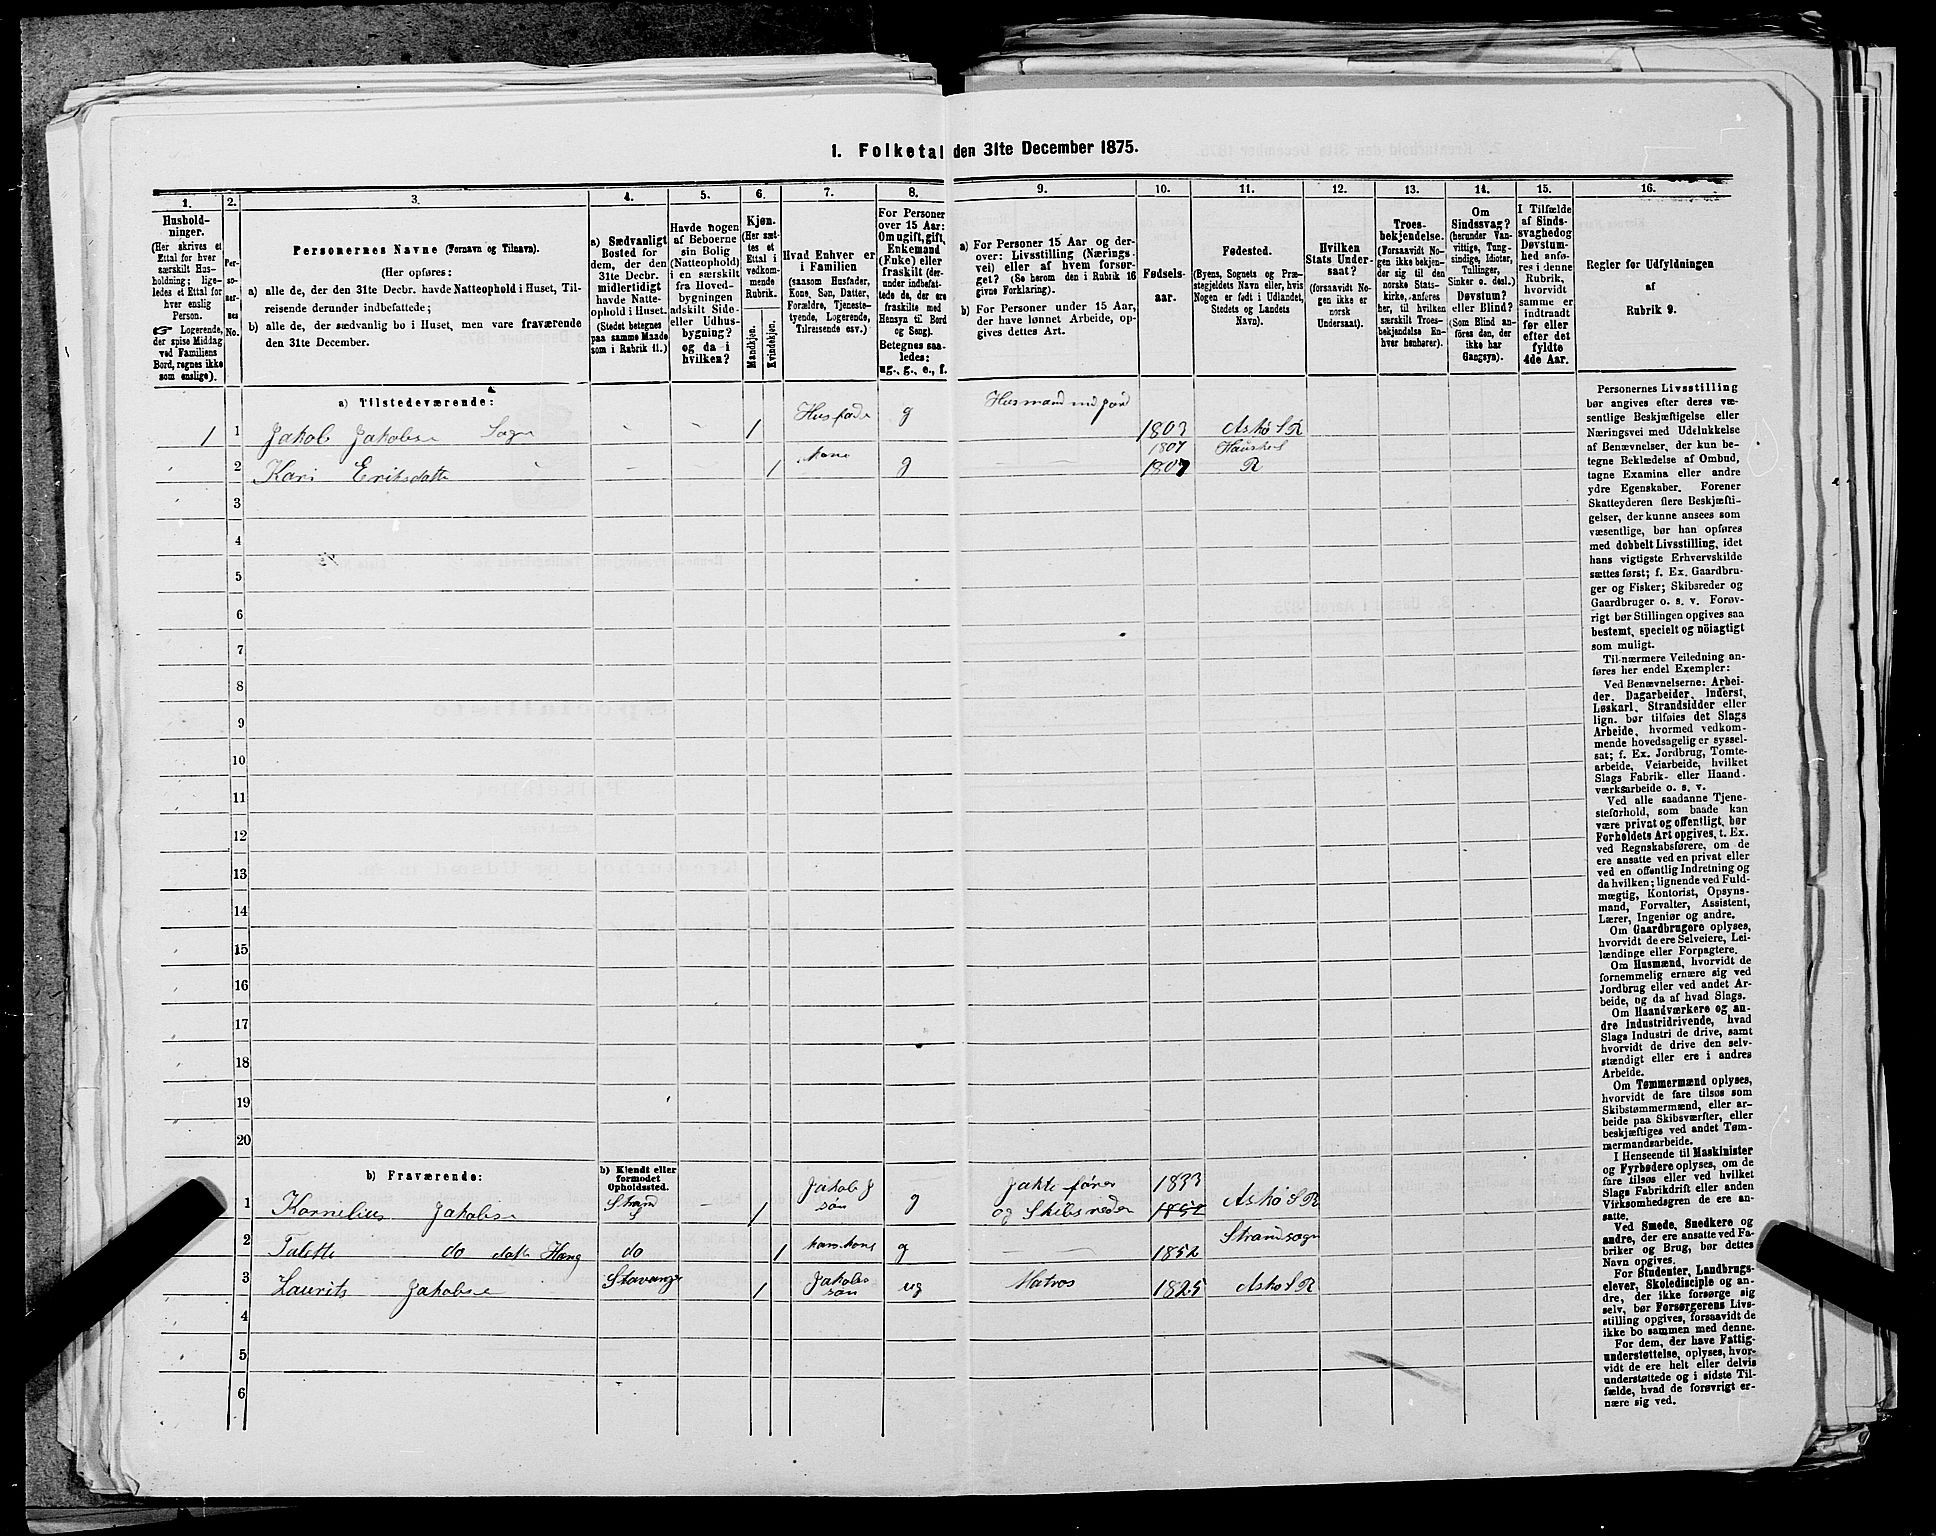 1. Folketal den 31te December 1875.
1.
Hushold-
ninger.
(Her skrives et
Ettal for hver
særskilt Hus-
holdning; lige-
ledes et Ettal for
hver enslig
Person.
☞ Logerende,
der spise Middag
ved Familiens
Bord, regnes ikke
som enslige).
2.
Per-
so-
ner-
nes
No.
3.
Personernes Navne (Fornavn og Tilnavn).
(Her opføres:
a) alle de, der den 31te Decbr. havde Natteophold i Huset, Til-
reisende derunder indbefattede;
b) alle de, der sædvanlig bo i Huset, men vare fraværende
den 31te December.
4.
a) Sædvanligt
Bosted for
dem, der den
31te Decbr.
midlertidigt
havde Natte-
ophold i Huset.
(Stedet betegnes
paa samme Maade
som i Rubrik 11.)
5.
Havde nogen
af Beboerne
sin Bolig
(Natteophold)
i en særskilt
fra Hoved-
bygningen
adskilt Side-
eller Udhus-
bygning?
og da i
hvilken?
6.
Kjøn.
(Her sæt-
tes et
Ettal i
vedkom-
mende
Rubrik.
Mandkjøn.
Kvindekjøn.
7.
Hvad Enhver er
i Familien
(saasom Husfader,
Kone, Søn, Datter,
Forældre, Tjeneste-
tyende, Logerende,
Tilreisende osv.)
8.
For Personer
over 15 Aar:
Om ugift, gift,
Enkemand
(Enke) eller
fraskilt (der-
under indbefat-
tede de, der ere
fraskilte med
Hensyn til Bord
og Seng).
Betegnes saa-
ledes:
ug., g., e., f.
9.
a) For Personer 15 Aar og der-
over: Livsstilling (Nærings-
vei) eller af hvem forsør-
get? (Se herom den i Rubrik 16
givne Forklaring).
b) For Personer under 15 Aar,
der have lønnet Arbeide, op-
gives dettes Art.
10.
Fødsels-
aar.
11.
Fødested.
(Byens, Sognets og Præ-
stegjeldets Navn eller, hvis
Nogen er født i Udlandet,
Stedets og Landets
Navn).
12.
Hvilken
Stats Under-
saat?
(forsaavidt No-
gen ikke er
norsk
Undersaat).
13.
Troes-
bekjendelse.
(Forsaavidt No-
gen ikke bekjen-
der sig til den
norske Stats-
kirke, anføres
her, til hvilken
særskilt Troes-
bekjendelse En-
hver henhører).
14.
Om
Sindssvag?
(herunder Van-
vittige, Tung-
sindige, Idioter,
Tullinger,
Sinker o. desl.)
Døvstum?
eller Blind?
(Som Blind an-
føres den, der
ikke har
Gangsyn).
15.
I Tilfælde
af Sinds-
svaghed og
Døvstum-
hed anfø-
res i denne
Rubrik,
hvorvidt
samme er
indtraadt
før eller
efter det
fyldte
4de Aar.
16.
Regler for Udfyldningen
af
Rubrik 9.
a) Tilstedeværende:
1 1 Jakob Jakobse Sogn 1 Husfade g Husmand med jord 1803 Askø S R
2 Kari Eriksdatte 1 kone g 1807 1807 R
3
4
5
6
7
8
9
10
11
12
13
14
15
16
17
18
19
20
b) Fraværende:
b) Kjendt eller
formodet
Opholdssted.
1 Kornelius Jakobse Strand S 1 Jakob J søn g Jakte fører og Skibsreder 1833 Askø S R
2 Talette do datte Haug do 1 hans kone g 1852 Strandsogn
3 Laurits Jakobse Stavange 1 Jakobs søn ug Matros 1825 Askø S R
4
5
6
Personernes Livsstilling
bør angives efter deres væ-
sentlige Beskjæftigelse eller
Næringsvei med Udelukkelse
af Benævnelser, der kun be-
tegne Beklædelse af Ombud,
tagne Examina eller andre
ydre Egenskaber. Forener
Skatteyderen flere Beskjæfti-
gelser, der kunne ansees som
væsentlige, bør han opføres
med dobbelt Livsstilling, idet
hans vigtigste Erhvervskilde
sættes først; f. Ex. Gaardbru-
ger og Fisker; Skibsreder og
Gaardbruger o. s. v. Forøv-
rigt bør Stillingen opgives saa
bestemt, specielt og nöiagtigt
som muligt.
Til nærmere Veiledning an-
føres her endel Exempler:
Ved Benævnelserne: Arbei-
der, Dagarbeider, Inderst,
Løskarl, Strandsidder eller
lign. bør tilføies det Slags
Arbeide, hvormed vedkom-
mende hovedsagelig er syssel-
sat; f. Ex. Jordbrug, Tomte-
arbeide, Veiarbeide, hvilket
Slags Fabrik- eller Haand-
værksarbeide o. s. v.
Ved alle saadanne Tjene-
steforhold, som baade kan
være privat og offentligt, bør
Forholdets Art opgives, t. Ex.
ved Regnskabsførere, om de
ere ansatte ved en privat eller
ved en offentlig Indretning og
da hvilken; lignende ved Fuld-
mægtig, Kontorist, Opsyns-
mand, Forvalter, Assistent,
Lærer, Ingeniør og andre.
Om Gaardbrugere oplyses,
hvorvidt de ere Selveiere, Lei-
lændinge eller Forpagtere.
Om Husmænd, hvorvidt de
fornemmelig ernære sig ved
Jordbrug eller ved andet Ar-
beide, og da af hvad Slags.
Om Haandværkere og an-
dre Industridrivende, hvad
Slags Industri de drive, samt
hvorvidt de drive den selv-
stændigt eller ere i andres
Arbeide.
Om Tømmermænd oplyses,
hvorvidt de fare tilsøs som
Skibstømmermænd, eller ar-
beide paa Skibsværfter, eller
beskjæftiges ved andet Tøm-
mermandsarbeide.
I Henseende til Maskinister
og Fyrbødere oplyses, om de
fare tilsøs eller ved hvilket
Slags Fabrikdrift eller anden
Virksomhedsgren de ere an-
satte.
Ved Smede, Snedkere og
andre, der ere ansatte ved Fa-
briker og Brug, bør dettes
Navn opgives.
For Studenter, Landbrugs-
elever, Skoledisciple og an-
dre, der ikke forsørge sig
selv, bør Forsørgerens Livs-
stilling opgives, forsaavidt de
ikke bo sammen med denne.
For dem, der have Fattig-
understøttelse, oplyses, hvor-
vidt de ere helt eller delvis
understøttede og i sidste Til-
fælde, hvad de forøvrigt er-
nære sig ved.